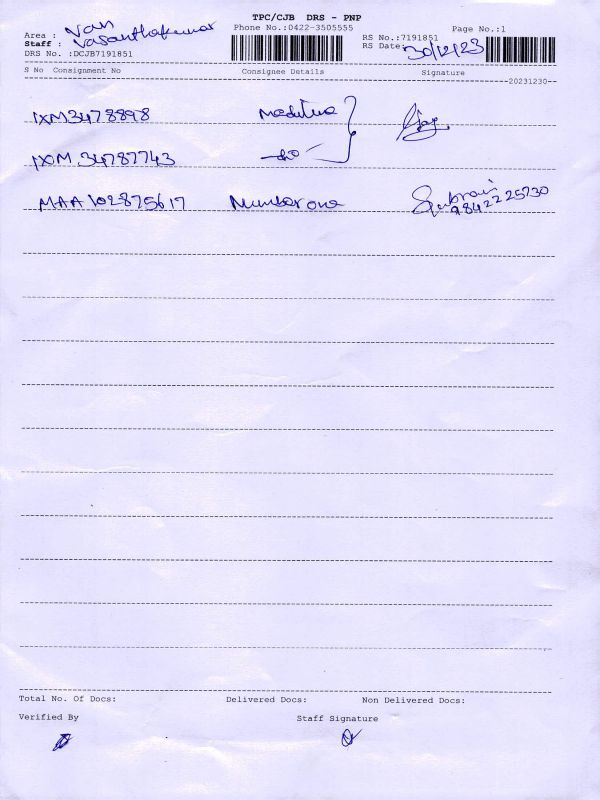 TPC/CJB DRS - PNP
Area : Van
Phone No.:0422-3505555
RS No.:7191851
Page No.:1
Staff : Vasanthakumar
RS Date: 30/12/23
DRS No. :DCJB7191851
S No Consignment No Consignee Details Signature
20231230
IXM3478898
IXM 34787743 -do-
MAA102875617
9842225730
Total No. Of Docs: Delivered Docs: Non Delivered Docs:
Verified By Staff Signature